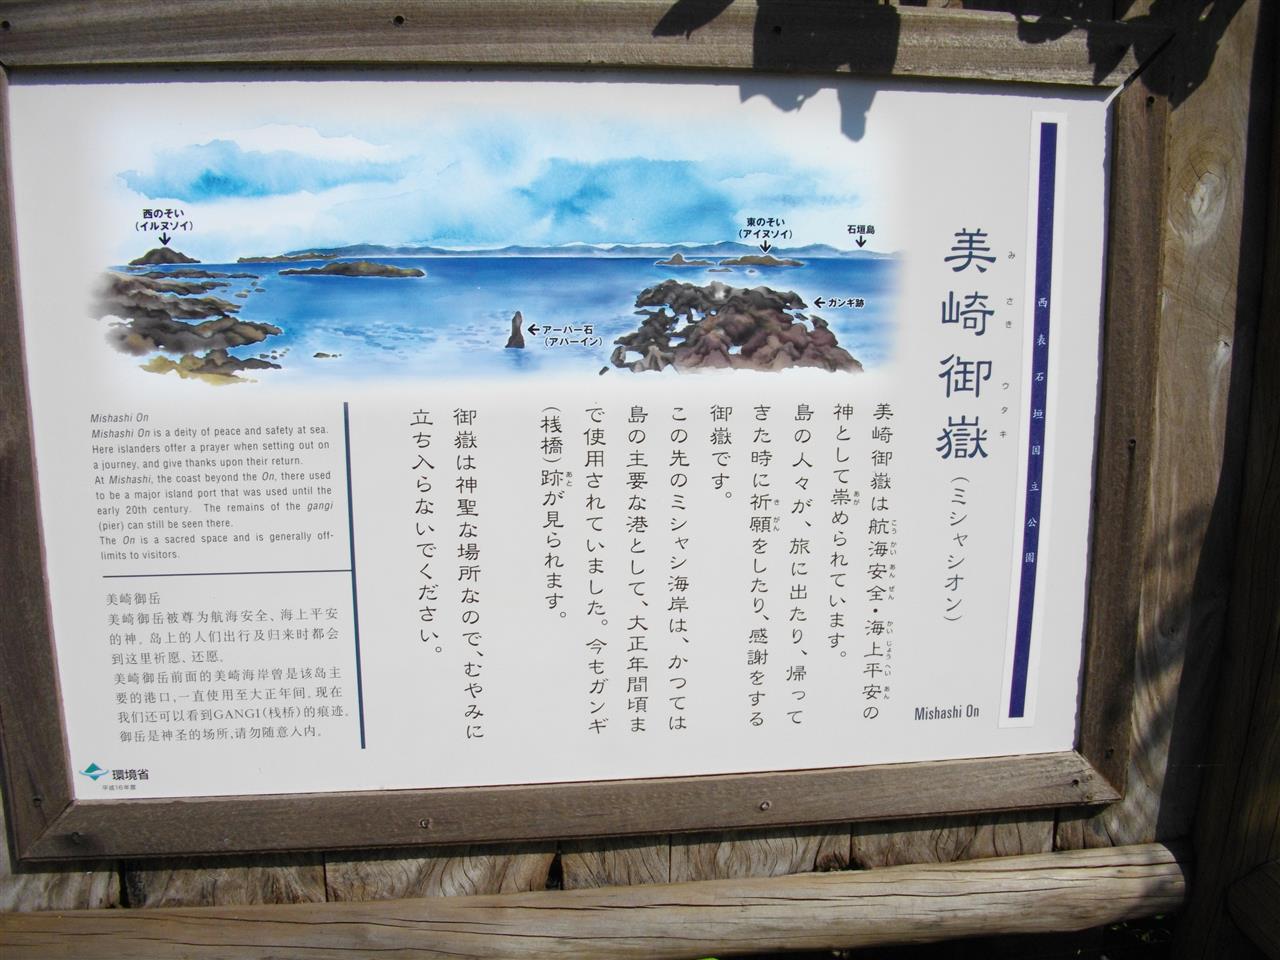 西表石垣国立公園
美崎御嶽(ミシャシオン)
みさきウタキ
Mishashi On
西のそい
(イルヌソイ)
東のそい
(アイヌソイ)
石垣島
ガンギ跡
アーパー石
(アパーイン)
美崎御嶽は航海安全・海上平安の
こうかいあんぜん かいじょうへいあん
神として崇められています。
あが
島の人々が、旅に出たり、帰って
きた時に祈願をしたり、感謝をする
きがん
御嶽です。
この先のミシャシ海岸は、かつては
島の主要な港として、大正年間頃ま
で使用されていました。今もガンギ
(桟橋)跡が見られます。
あと
御嶽は神聖な場所なので、むやみに
立ち入らないでください。
Mishashi On
Mishashi On is a deity of peace and safety at sea.
Here islanders offer a prayer when setting out on
a journey, and give thanks upon their return.
At Mishashi, the coast beyond the On, there used
to be a major island port that was used until the
early 20th century. The remains of the gangi
(pier) can still be seen there.
The On is a sacred space and is generally off-
limits to visitors.
美崎御岳
美崎御岳被尊为航海安全、海上平安
的神。岛上的人们出行及归来时都会
到这里祈愿、还愿。
美崎御岳前面的美崎海岸曾是该岛主
要的港口,一直使用至大正年间。现在
我们还可以看到GANGI(栈桥)的痕迹。
御岳是神圣的场所,请勿随意入内。
環境省
平成16年度